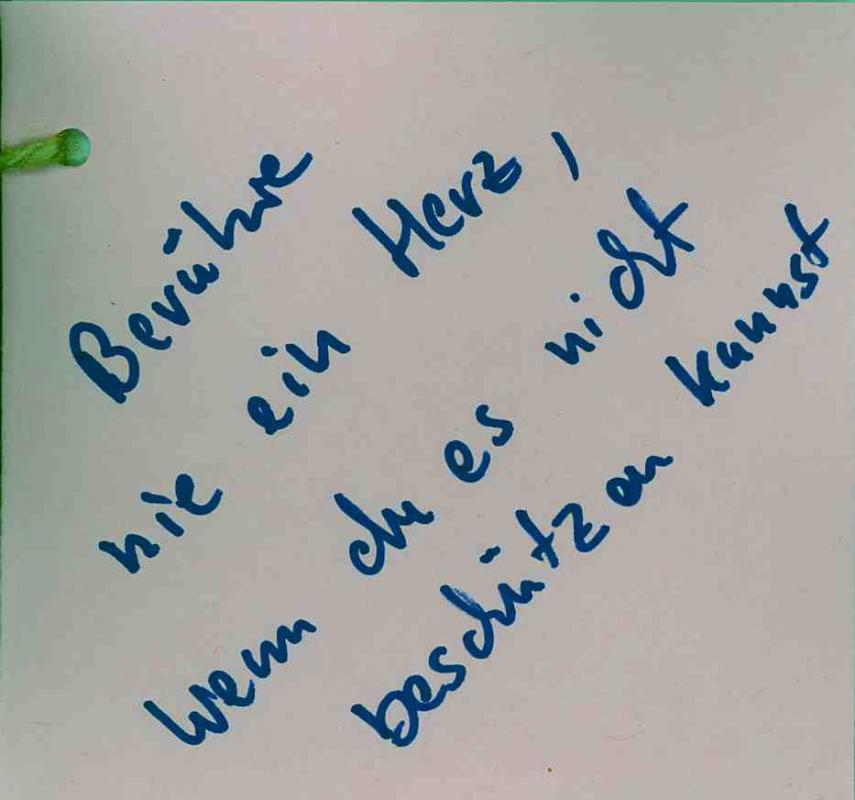 Berühre
nie ein Herz,
wenn du es nicht
beschützen kannst